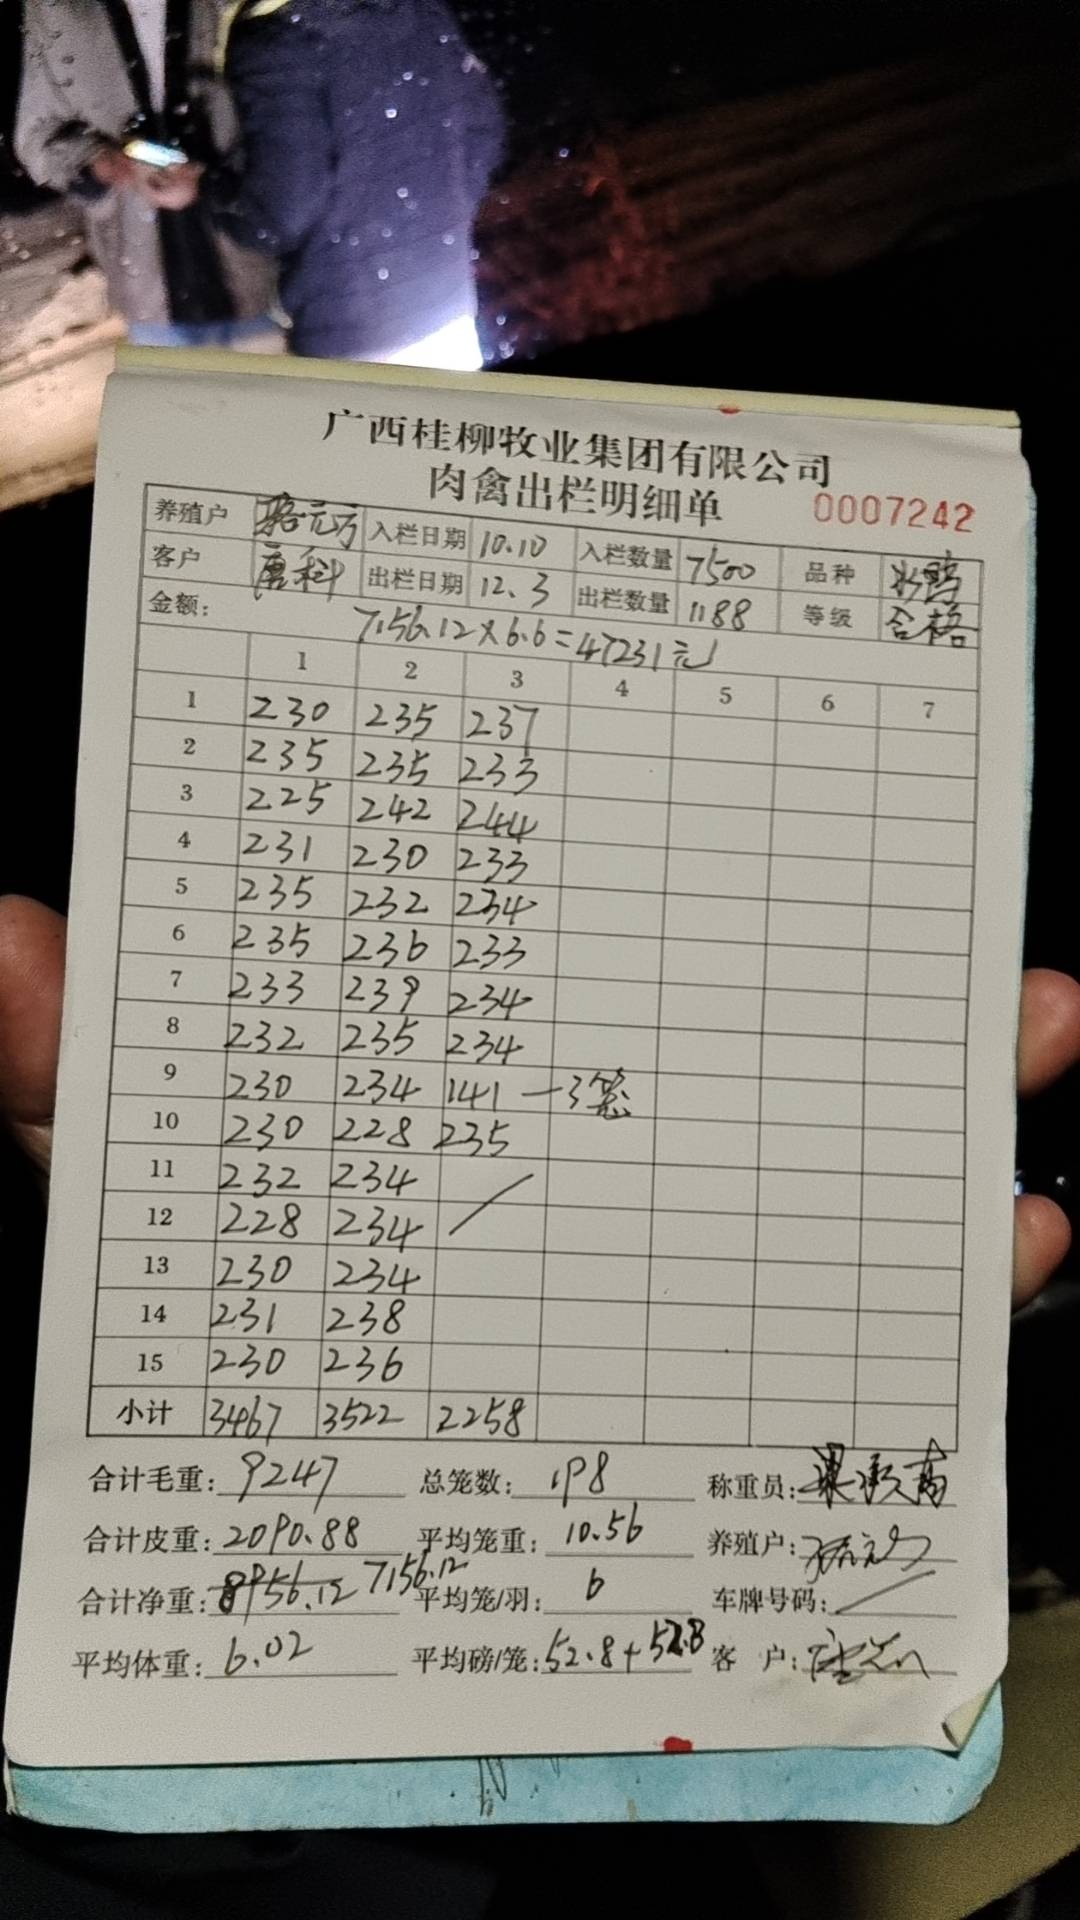 广西桂柳牧业集团有限公司
肉禽出栏明细单 0007242
养殖户 元万 入栏日期 10.10 入栏数量 7500 品种 水鸭
客户 唐科 出栏日期 12.3 出栏数量 1188 等级 合格
金额: 7156.12×6.6=47231元
1 2 3 4 5 6 7
1 230 235 237
2 235 235 233
3 225 242 244
4 231 230 233
5 235 232 234
6 235 236 233
7 233 239 234
8 232 235 234
9 230 234 141 —3笼
10 230 228 235
11 232 234
12 228 234
13 230 234
14 231 238
15 230 236
小计 3467 3522 2258
合计毛重: 9247 总笼数: 198 称重员:
合计皮重: 2090.88 平均笼重: 10.56 养殖户:
合计净重: 8956.12 7156.12 平均笼/羽: 6 车牌号码:
平均体重: 6.02 平均磅/笼: 52.8+52.8 客 户: